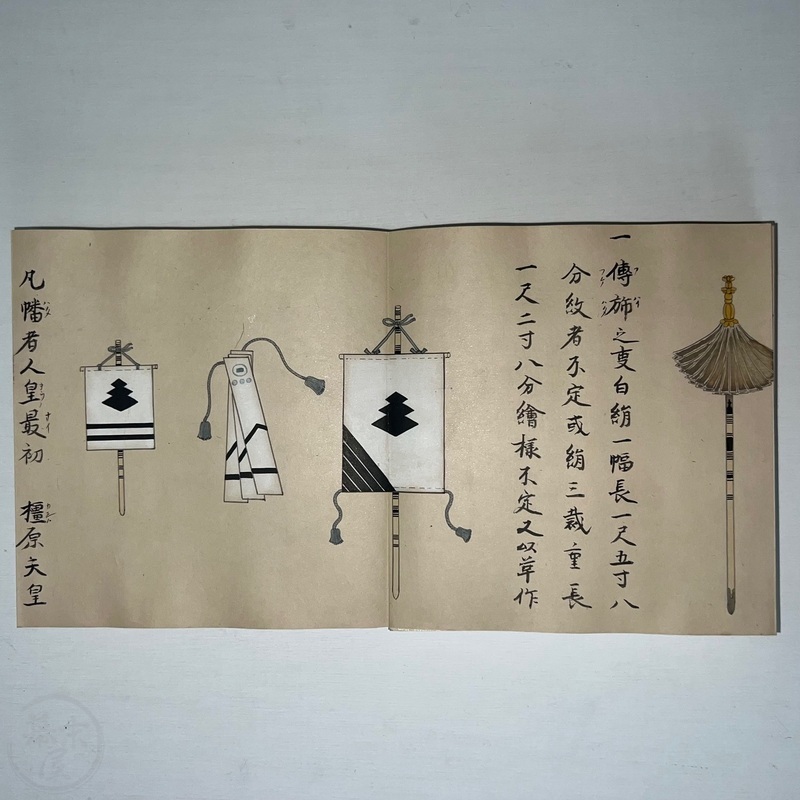 一傳旆之㕝白絹一幅長一尺五寸八
分紋者不定或絹三裁重長
一尺二寸八分繪様不定又以草作
凡幡者人皇最初 橿原天皇